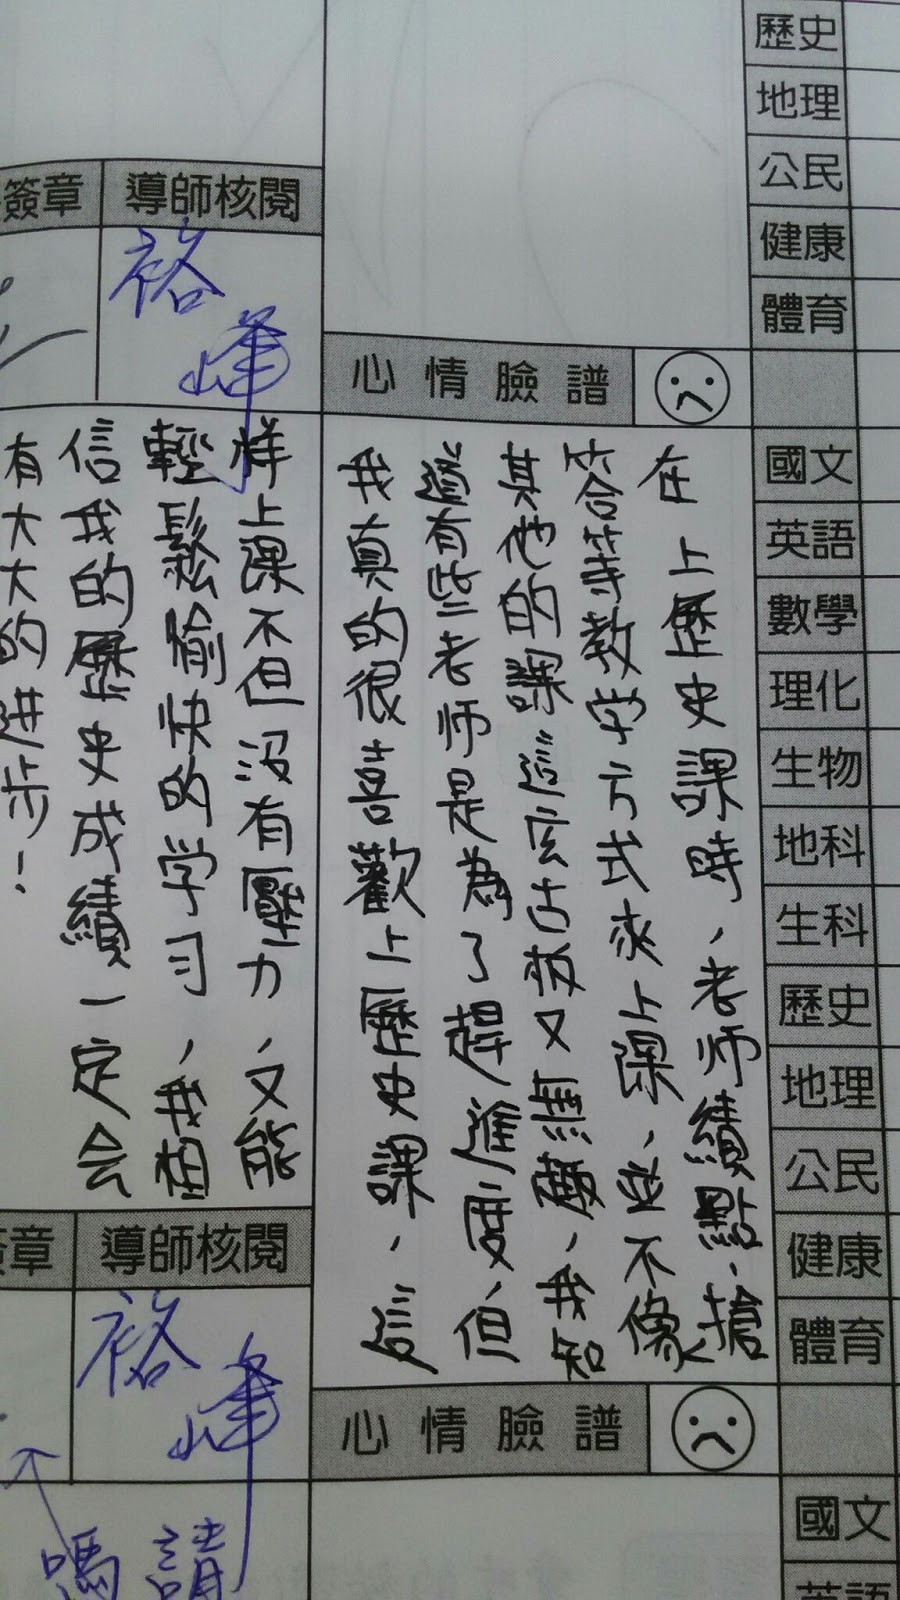 歷史
地理
公民
健康
體育
國文
英語
數學
理化
生物
地科
生科
歷史
地理
公民
健康
體育
國文
英語
心情臉譜
在上歷史課時、老师績點、搶
答等教学方式來上課、並不像
其他的課這玄古板又無趣、我知
道有些老师是為了趕進度、但
我真的很喜歡上歷史課、這
心情臉譜
簽章
導師核閱
裕峰
樣上課不但沒有壓力、又能
輕鬆愉快的学习，我相
信我的歷史成績一定会
有大大的进步！
簽章
導師核閱
裕峰
請
嗎